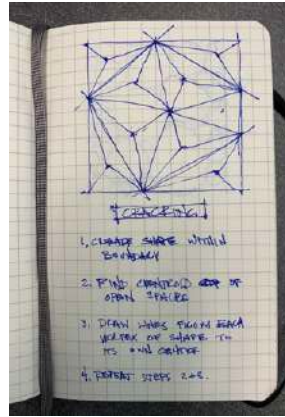 "CRACKING"
1. CREATE SHAPE WITHIN
BOUNDARY
2. FIND CENTROID OF
OPEN SPACES
3. DRAW LINES FROM EACH
VERTEX OF SHAPE TO
ITS OWN CENTER
4. REPEAT STEPS 2+3.